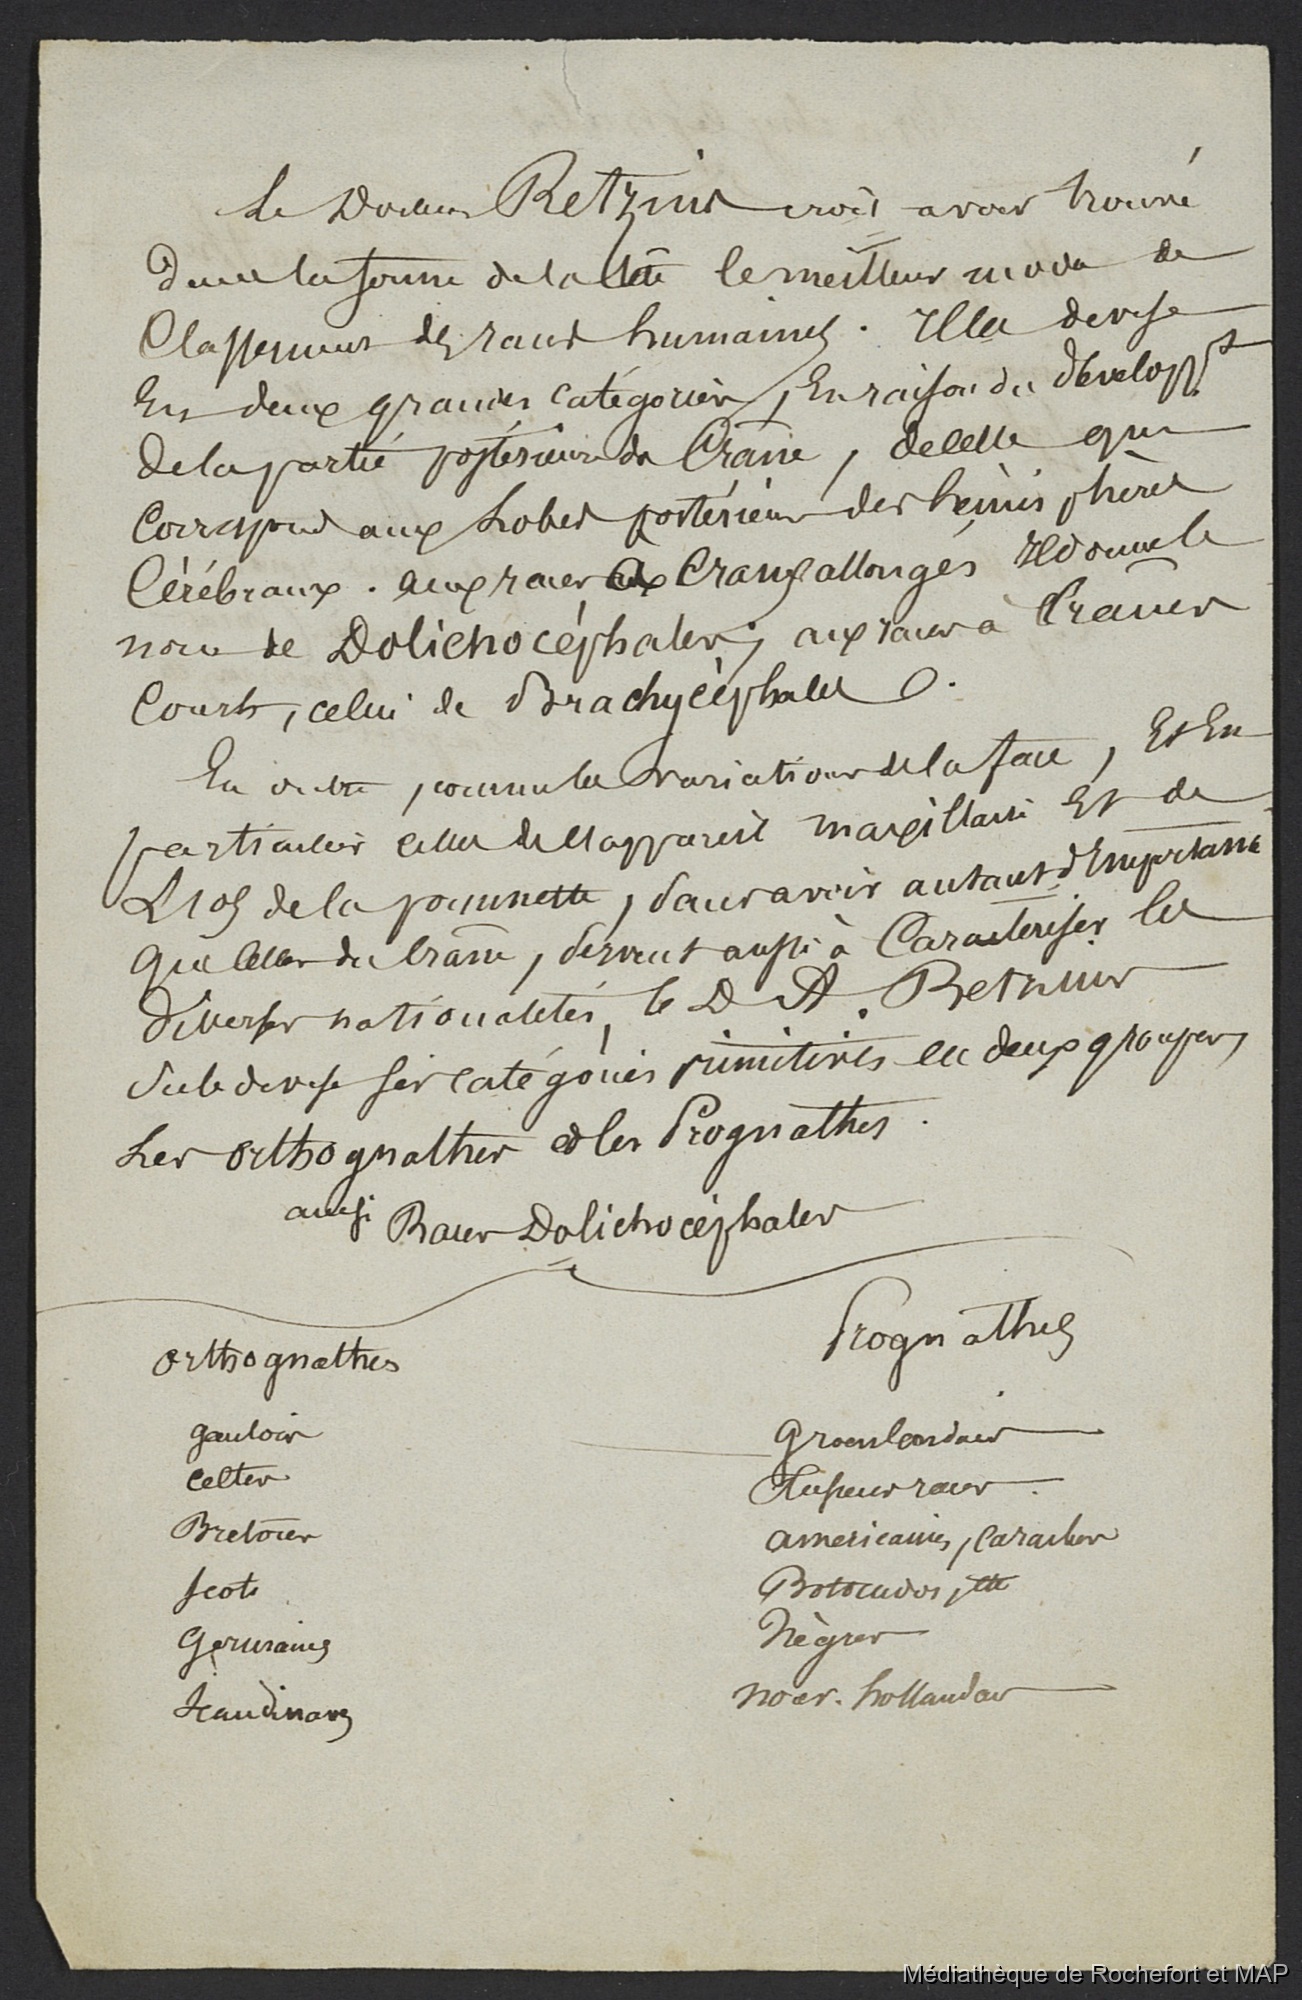 Le Docteur Retzius croit avoir trouvé
dans la forme de la tête le meilleur mode de
Classement des races humaines. Il les divise
En deux grandes catégories, En raison du développt
de la partie postérieure du Crâne, de celle qui
Correspond aux Lobes postérieurs des hémisphères
Cérébraux. aux races aux Cranes allongés Il donne le
nom de Dolichocéphales, aux races à Crânes
Courts, celui de Brachycéphales.
En outre, comme les variations de la face, Et En
particulier celles de l'appareil maxillaire Et de
L'os de la pommette, sans avoir autant d'Importance
que celles du Crâne, servent aussi à Caractériser les
diverses nationalités, le D A. Retzius
Subdivise ses catégories primitives en deux groupes,
Les orthognathes et les Prognathes.
ainsi Races Dolichocéphales
orthognathes Prognathes
gaulois Groenlandais
Celtes Plusieurs races
Bretons américaines, Caraibes
scots Botocudos, etc
Germains Nègres
Scandinaves nouv. hollandais
Médiathèque de Rochefort et MAP